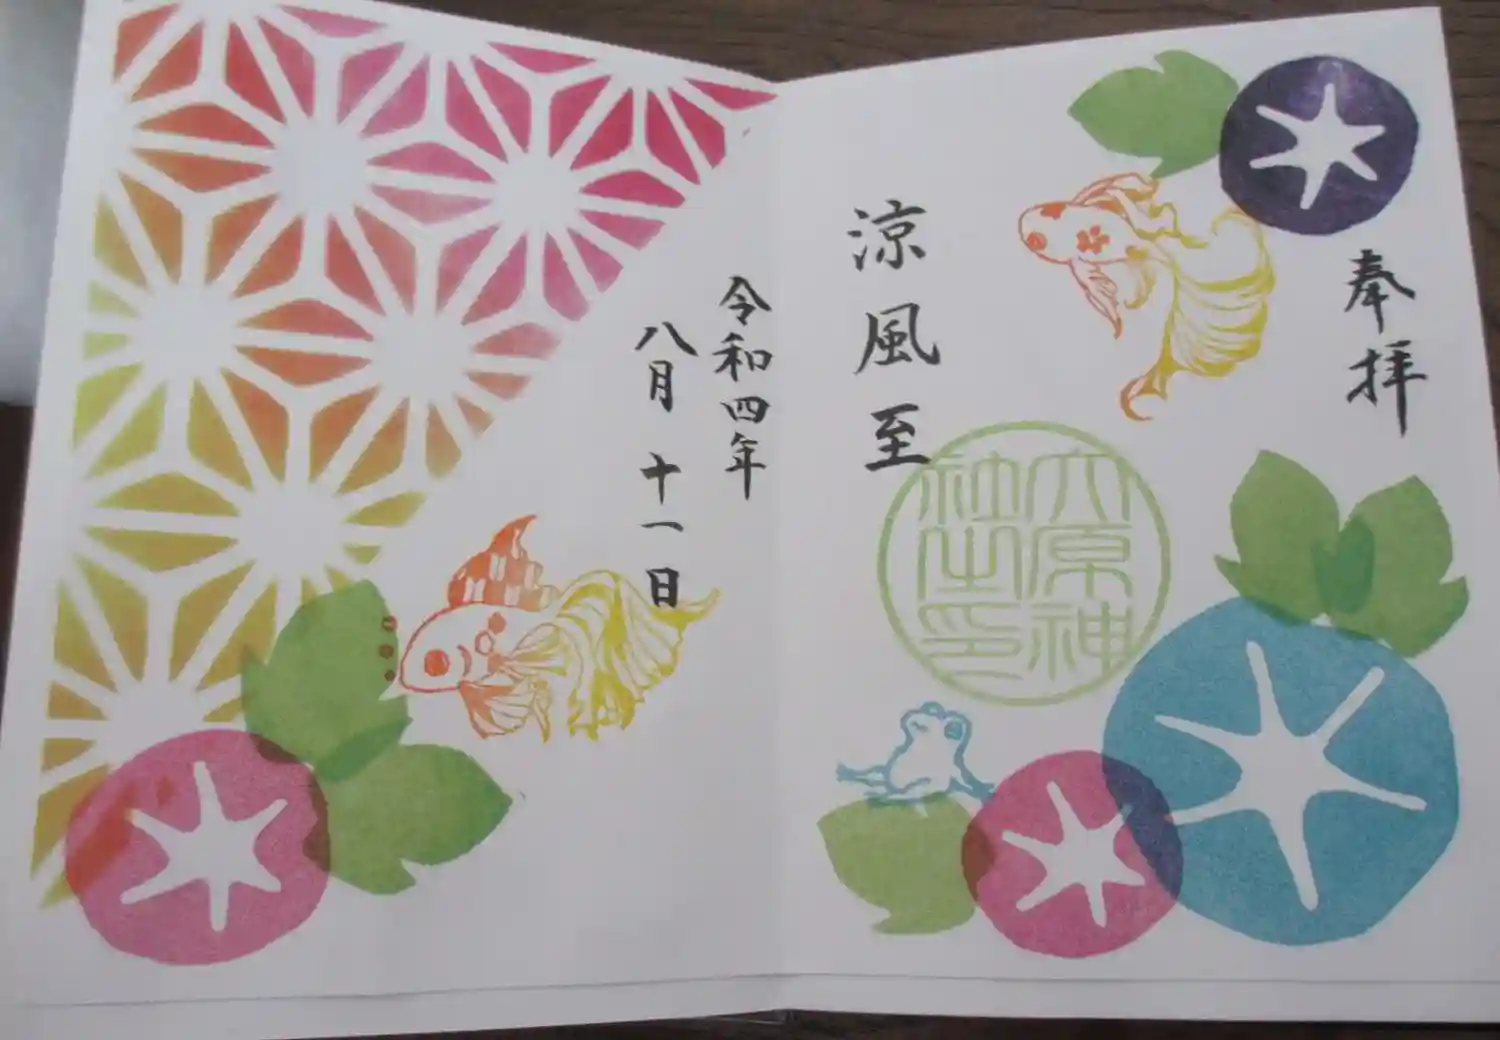 奉拝
涼風至
六原神
社之印
令和四年
八月十一日